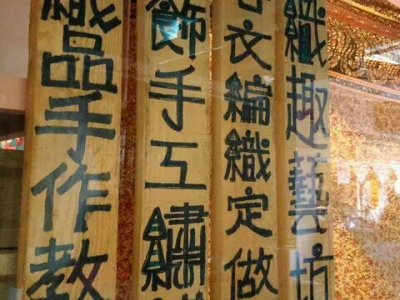 織趣藝坊
衣編織定做
飾手工繡
織品手作教